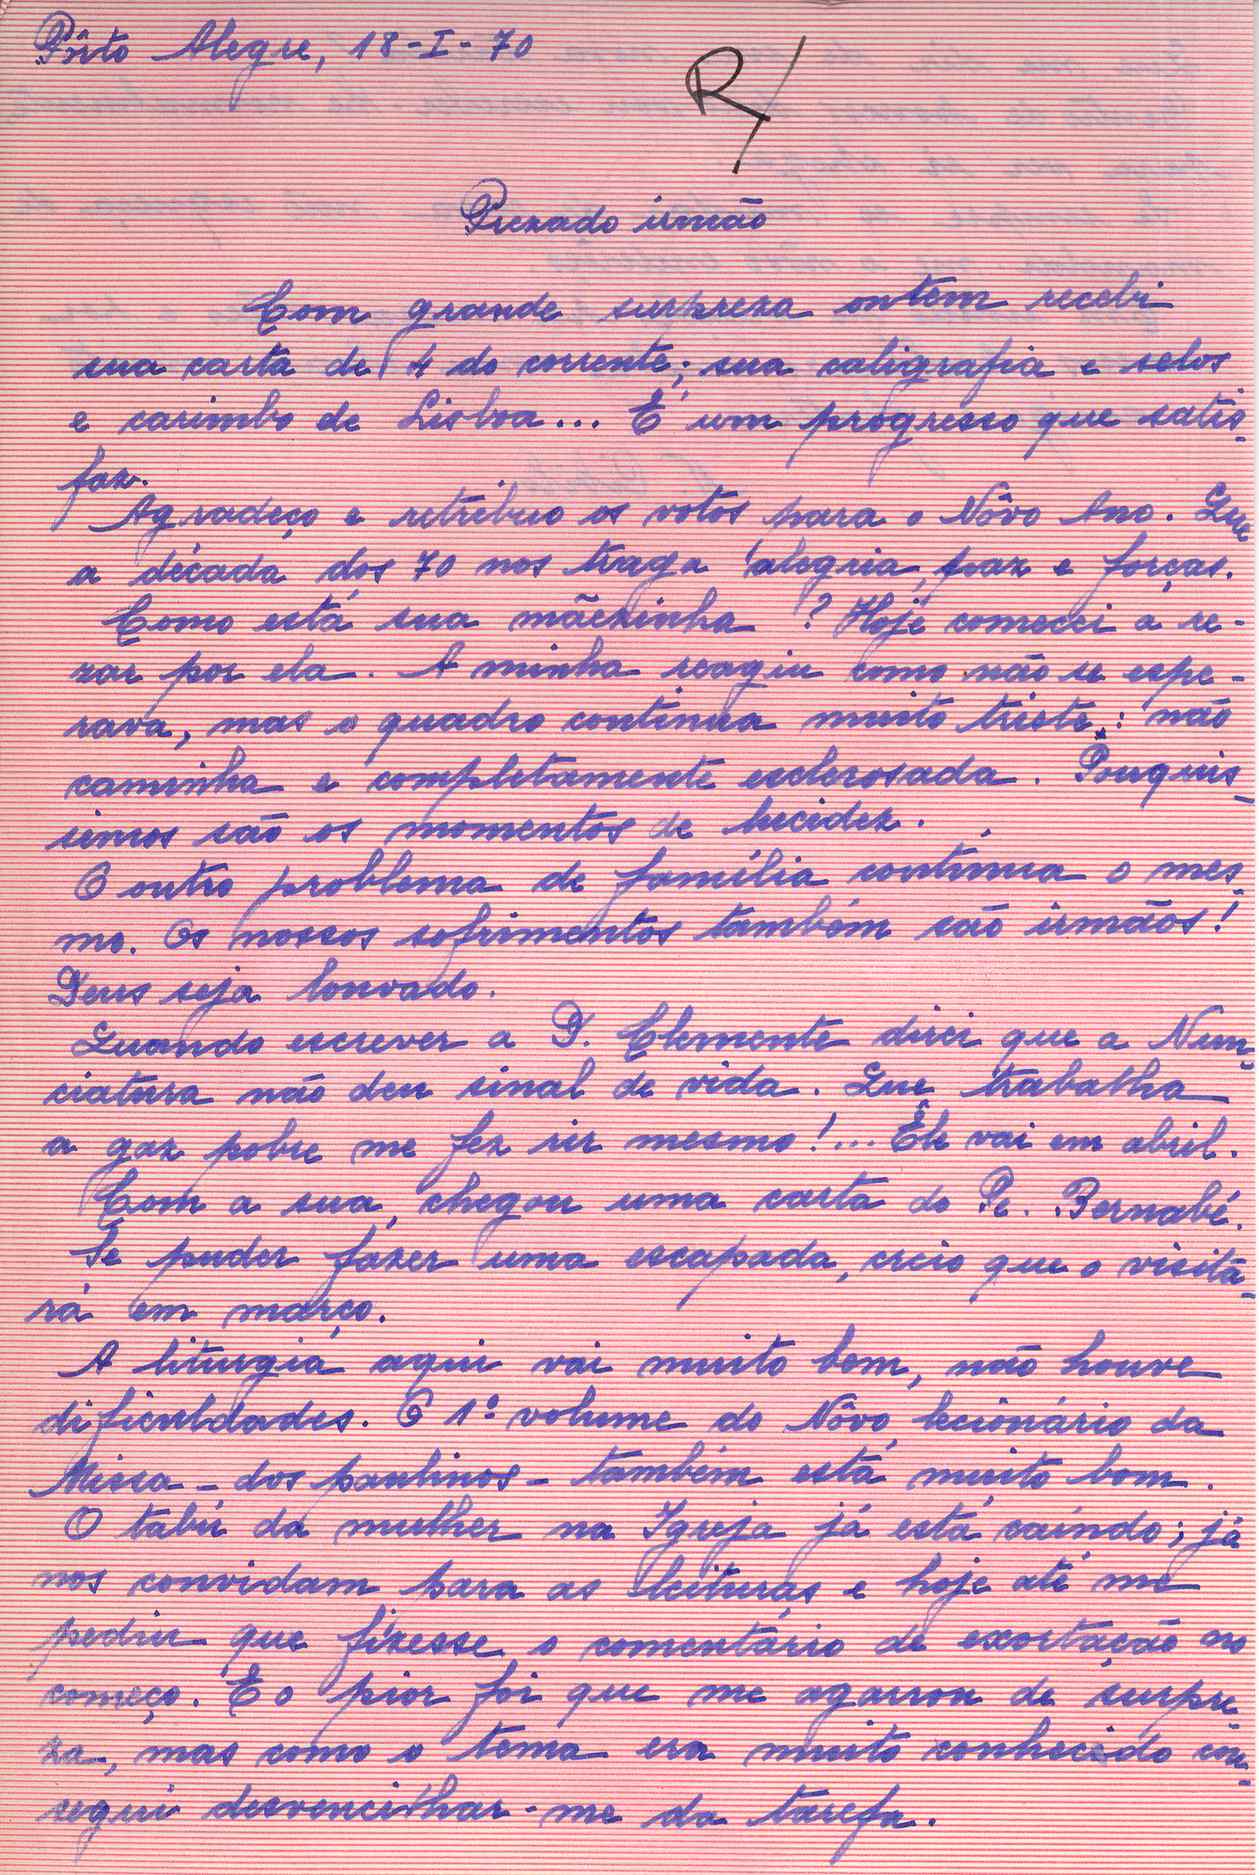 Pôrto Alegre, 18-I-70
R/
Prezado irmão
Com grande surpreza ontem recebi
sua carta de 4 do corrente; sua caligrafia e selos
e carimbo de Lisboa... É um progresso que satis-
faz.
Agradeço e retribuo os votos para o Nôvo Ano. Que
a década dos 70 nos traga alegria, paz e forças.
Como está sua mãezinha? Hoje comecei a re-
zar por ela. A minha reagiu como não se espe-
rava, mas o quadro continua muito triste: não
caminha e completamente esclerosada. Pouquis-
simos são os momentos de lucidez.
O outro problema de família continua o mes-
mo. Os nossos sofrimentos também são irmãos!
Deus seja louvado.
Quando escrever a D. Clemente direi que a Nun-
ciatura não deu sinal de vida. Que trabalha
a gaz pobre me fez rir mesmo!... Êle vai em abril.
Com a sua, chegou uma carta do Pe. Bernabé.
Se puder fazer uma escapada, creio que o visita-
rá em março.
A liturgia aqui vai muito bem, não houve
dificuldades. O 1º volume do Nôvo lecionário da
Missa - dos paulinos - também está muito bom.
O tabú da mulher na Igreja já está caíndo; já
nos convidam para as leituras e hoje até me
pediu que fizesse o comentário de exortação no
começo. E o pior foi que me agarrou de surpre-
za, mas como o tema era muito conhecido con-
segui desvencilhar-me da tarefa.